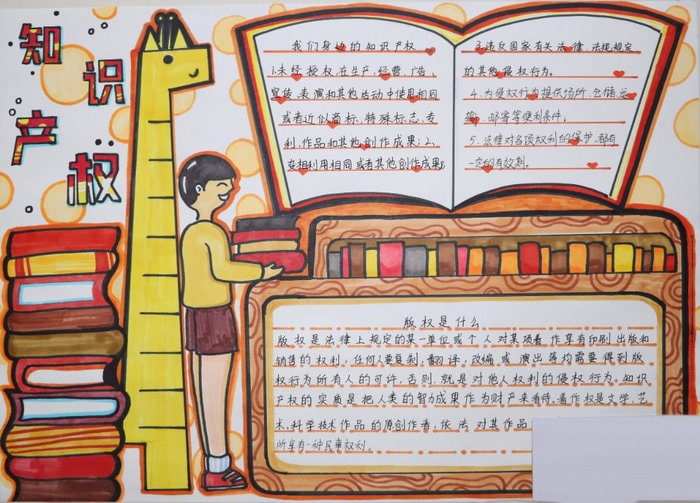 知识产权
我们身边的知识产权
1.未经授权,在生产,经营,广告,
宣传,表演和其他活动中使用相同
或者近似商标,特殊标志,专
利,作品和其他创作成果;2、
变相利用相同或者其他创作成果;
3.违反国家有关法律,法规规定
的其他侵权行为。
4.为侵权行为提供场所,仓储,运
输,邮寄等便利条件,
5.法律对各项权利的保护,都有
一定的有效期。
版权是什么
版权是法律上规定的某一单位或个人对某项着作享有印刷出版和
销售的权利,任何人要复制,翻译,改编或演出等均需要得到版
权行为所有人的可许,否则,就是对他人权利的侵权行为。知识
产权的实质是把人类的智力成果作为财产来看待。着作权是文学、艺
术、科学技术作品的原创作者,依法对其作品
所享有一种民事权利。